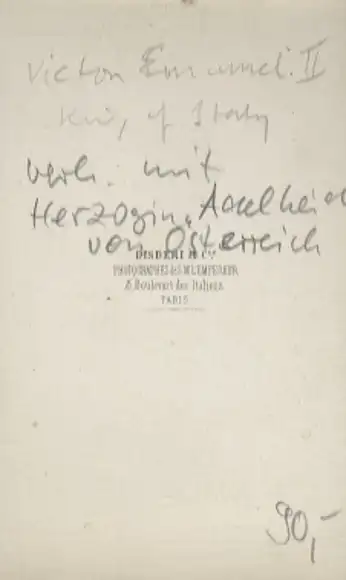 Victor Emanuel. II
King of Italy
verh. mit
Herzogin Adelheid
von Österreich
DISDERI & Cie
PHOTOGRAPHES de S.M. L'EMPEREUR
8, Boulevart des Italiens
PARIS
90,-